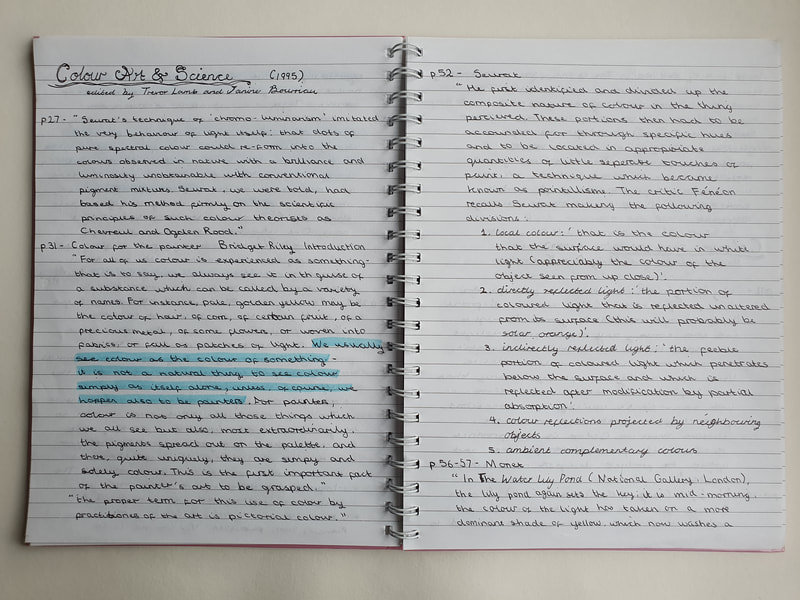 Colour Art & Science (1995)
edited by Trevor Lamb and Janine Bourriau
p27 - "Seurat's technique of 'chromo-luminanism' imitated
the very behaviour of light itself: that dots of
pure spectral colour could re-form into the
colours observed in nature with a brilliance and
luminosity unobtainable with conventional
pigment mixtures. Seurat, we were told, had
based his method firmly on the scientific
principles of such colour theorists as
Chevreul and Ogden Rood."
p31 - Colour for the painter Bridget Riley Introduction
"For all of us colour is experienced as something -
that is to say, we always see it in th guise of
a substance which can be called by a variety
of names. For instance, pale, golden yellow may be
the colour of hair, of corn, of certain fruit, of a
precious metal, of some flowers, or woven into
fabrics, or fall as patches of light. We usually
see colour as the colour of something -
it is not a natural thing to see colour
simply as itself alone, unless, of course, we
happen also to be painters. For painters,
colour is not only all those things which
we all see but also, most extraordinarily,
the pigments spread out on the palette, and
there, quite uniquely, they are simply and
solely colour. This is the first important fact
of the painter's art to be grasped."
"the proper term for this use of colour by
practitioners of the art is pictorial colour."
p52 - Seurat
"He first identified and divided up the
composite nature of colour in the thing
percieved. These portions then had to be
accounded for through specific hues
and to be located in appropiate
quantities of little seperate touches of
paint, a technique which became
known as pointillisme. The critic Fénéon
recalls Seurat making the following
divisions:
1. local colour: 'that is the colour
that the surface would have in whit
light (appreciably the colour of the
object seen from up close)'.
2. directly reflected light: 'the portion of
coloured light that is reflected unaltered
from its surface (this will probably be
solar orange)'.
3. indirectly reflected light: 'the feeble
portion of coloured light which penetrates
below the surface and which is
reflected after modification by partial
absorption'.
4. colour reflections projected by neighbouring
objects
5. ambient complementary colours
p56-57 - Monet
"In The Water Lily Pond (National Gallery, London),
the lily pond again sets the key: it is mid-morning,
the colour of the light has taken on a more
dominant shade of yellow, which now washes a